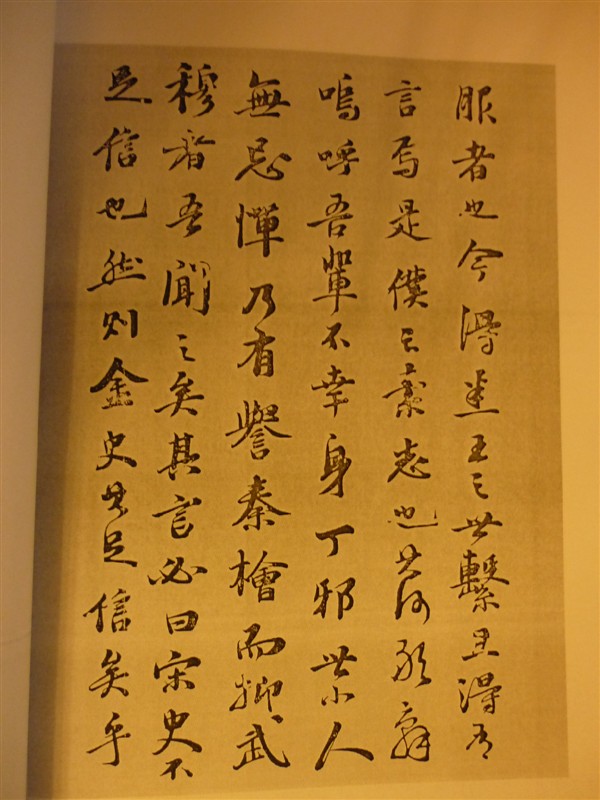 服者也今得王之世繫且得
言焉是僕之素志也其何敢辭
嗚呼吾輩不幸身丁邪世小人
無忌憚乃有譽秦檜而抑武
穆者吾聞之矣其言必曰宋史不
足信也然則金史其足信矣乎